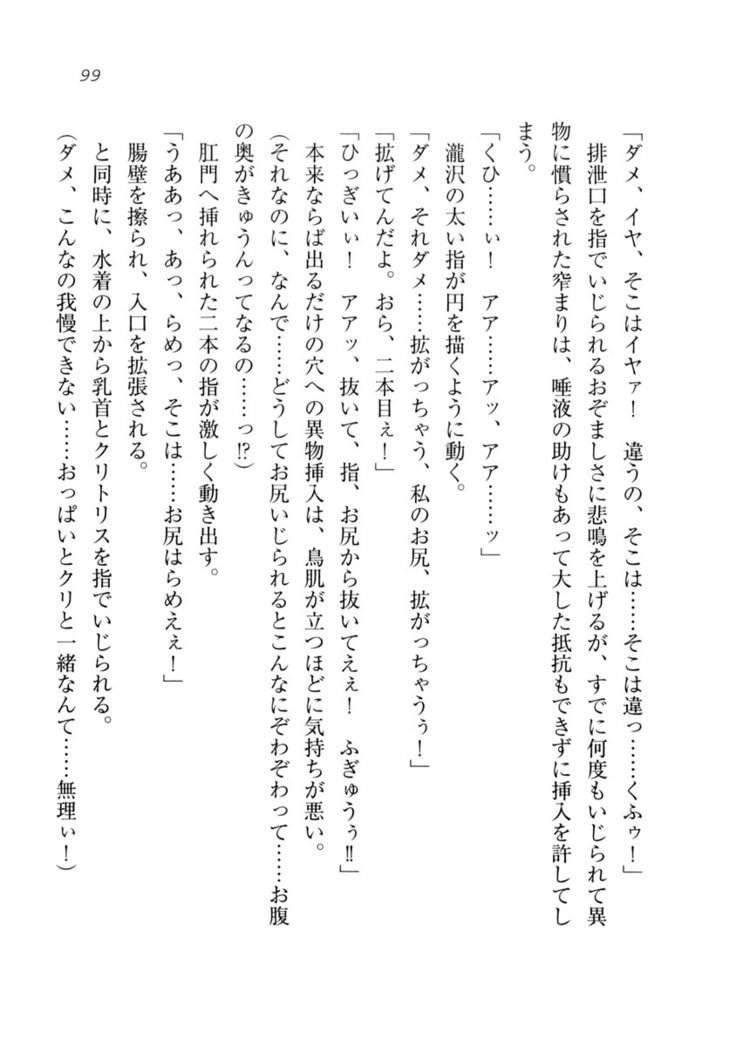 99
「ダメ、イヤ、そこはイヤァ！　違うの、そこは……そこは違っ……くふゥ！」
排泄口を指でいじられるおぞましさに悲鳴を上げるが、すでに何度もいじられて異
物に慣らされた窄まりは、唾液の助けもあって大した抵抗もできずに挿入を許してし
まう。
「くひ……ぃ！　アア……アッ、アア……ッ」
瀧沢の太い指が円を描くように動く。
「ダメ、それダメ……拡がっちゃう、私のお尻、拡がっちゃうぅ！」
「拡げてんだよ。おら、二本目ぇ！」
「ひっぎいぃ！　アアッ、抜いて、指、お尻から抜いてえぇ！　ふぎゅうぅ‼」
本来ならば出るだけの穴への異物挿入は、鳥肌が立つほどに気持ちが悪い。
（それなのに、なんで……どうしてお尻いじられるとこんなにぞわぞわって……お腹
の奥がきゅうんってなるの……っ⁉）
肛門へ挿れられた二本の指が激しく動き出す。
「うああっ、あっ、らめっ、そこは……お尻はらめえぇ！」
腸壁を擦られ、入口を拡張される。
と同時に、水着の上から乳首とクリトリスを指でいじられる。
（ダメ、こんなの我慢できない……おっぱいとクリと一緒なんて……無理ぃ！）